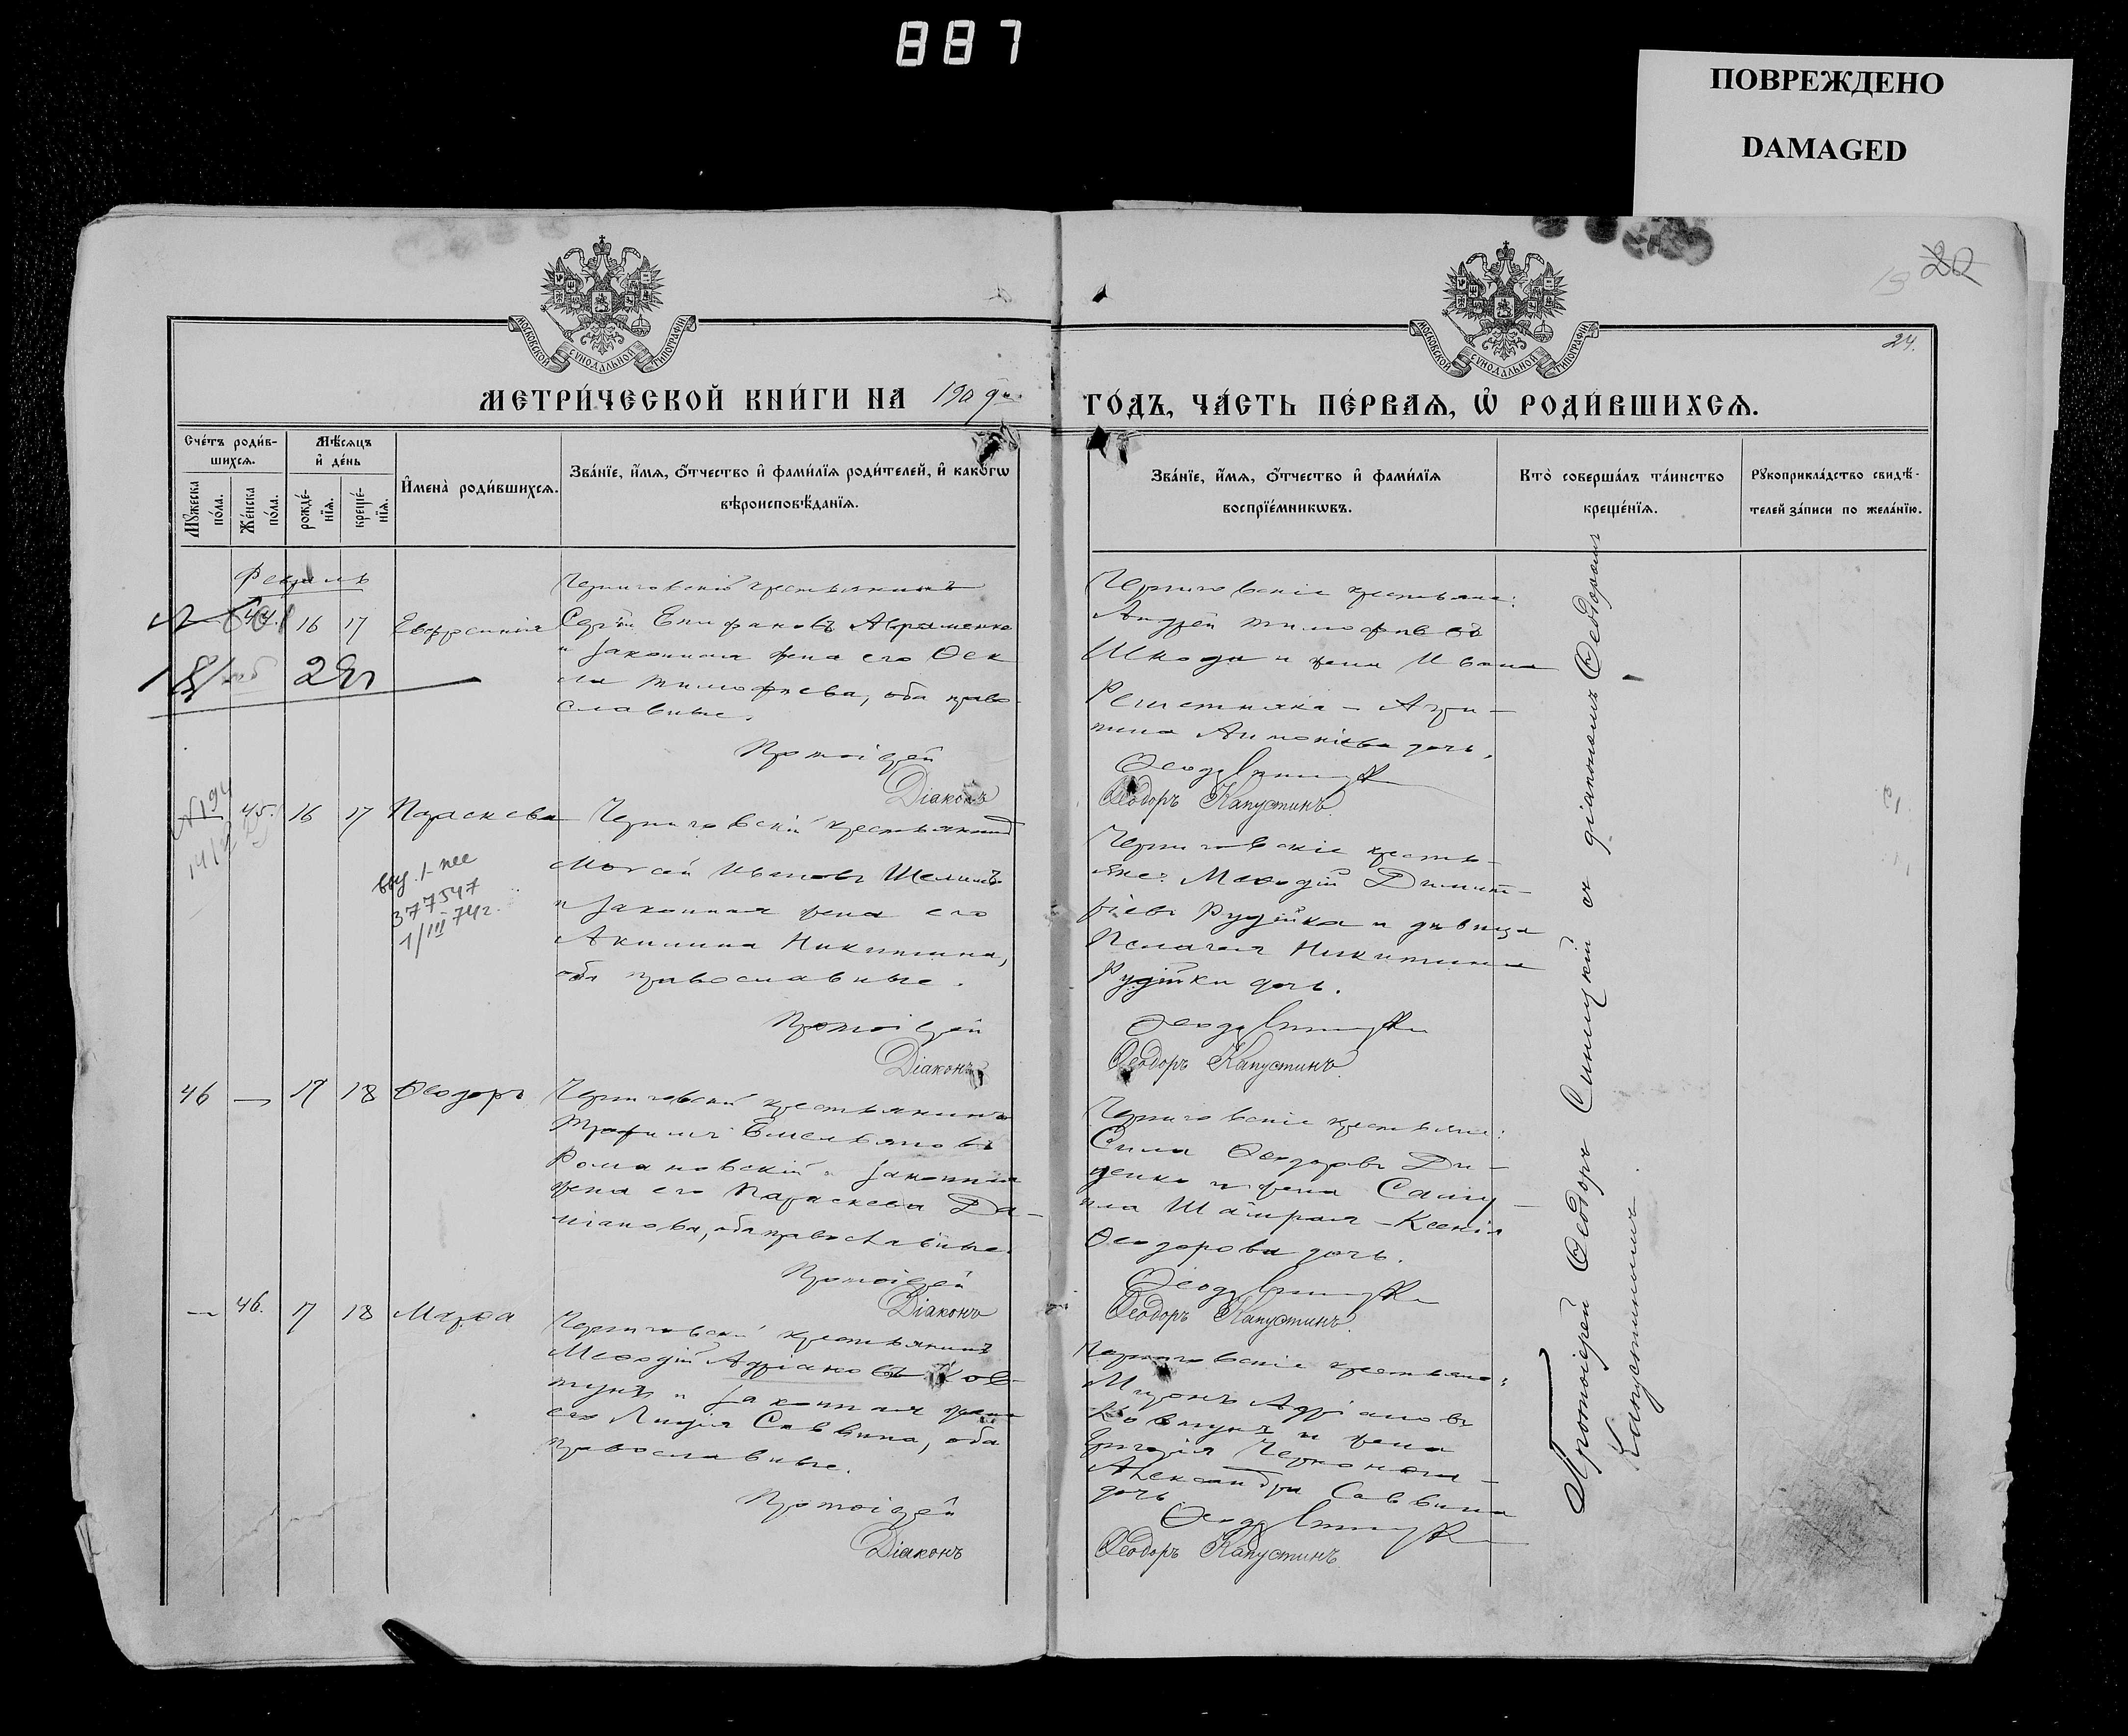 887
ПОВРЕЖДЕНО
DAMAGED
20
24.
МОСКОВСКОЙ СѴНОДАЛЬНОЙ ТИПОГРАФІИ
МОСКОВСКОЙ СѴНОДАЛЬНОЙ ТИПОГРАФІИ
МЕТРИ́ЧЕСКОЙ КНИ́ГИ НА 190
ГО́ДЪ, ЧА́СТЬ ПЕ́РВАЯ, Ѡ҆ РОДИ́ВШИХСЯ.
Сче́тъ роди́в-
шихся.
Мꙋ́жеска по́ла.
Же́нска по́ла.
Мѣ́сяцъ
и҆ де́нь
рожде́-
нїя.
креще́-
нїя.
И҆мена̀ роди́вшихся.
Зва́нїе, и҆́мя, о҆́тчество и҆ фами́лїя роди́телей, и҆ како́гѡ
вѣроисповѣ́данїя.
Зва́нїе, и҆́мя, о҆́тчество и҆ фами́лїя
воспрїе́мникѡвъ.
Кто̀ соверша́лъ та́инство
креще́нїя.
Рꙋкоприкла́дство свидѣ́-
телей за́писи по жела́нїю.
Февраль
44. 16 17 Евфросинія
Черниговскій крестьянинъ
Сергій Епифановъ Авраменко
и законная жена его Ѳек
ла Тимофеева, оба право
славные.
Протоіерей
Діаконъ
Черниговскіе крестьяне:
Андрей Тимофеевъ
Шкода и жена Ивана
Решетняка - Агри-
пина Антоніева дочь.
Ѳеодоръ Капустинъ
N194
45. 16 17 Параскева
выд. I-нее
377547
1/III 74г.
Черниговскій крестьянинъ
Мотсей Ивановъ
и законная жена его
Акилина Никитина,
оба православные.
Протоіерей
Діаконъ
Черниговскіе кресть-
яне: Меѳодій Димит-
ріевъ Рудійка и девица
Пелагея Никитина
Рудійки дочь.
Ѳеодоръ Капустинъ
46 — 17 18 Ѳеодоръ
Черниговскій крестьянинъ
Трофимъ Емельяновъ
Романовскій и законная
жена его Параскева Да-
міанова, оба православные.
Протоіерей
Діаконъ
Черниговскіе крестьяне:
Сила Ѳеодоровъ Ди-
ценко и жена Саму-
ила Шамрая - Ксенія
Ѳеодорова дочь.
Ѳеодоръ Капустинъ
— 46. 17 18 Марѳа
Черниговскій крестьянинъ
Меѳодій Адріановъ Ков-
тунъ и законная жена
его Лидія Саввина, оба
православные.
Протоіерей
Діаконъ
Черниговскіе крестьяне:
Миронъ Адріановъ
Ковтунъ и жена
Григорія
Александра Саввина
дочь
Ѳеодоръ Капустинъ
Протоіерей Ѳеодоръ Синицкій съ діакономъ Ѳеодоромъ
Капустинымъ.